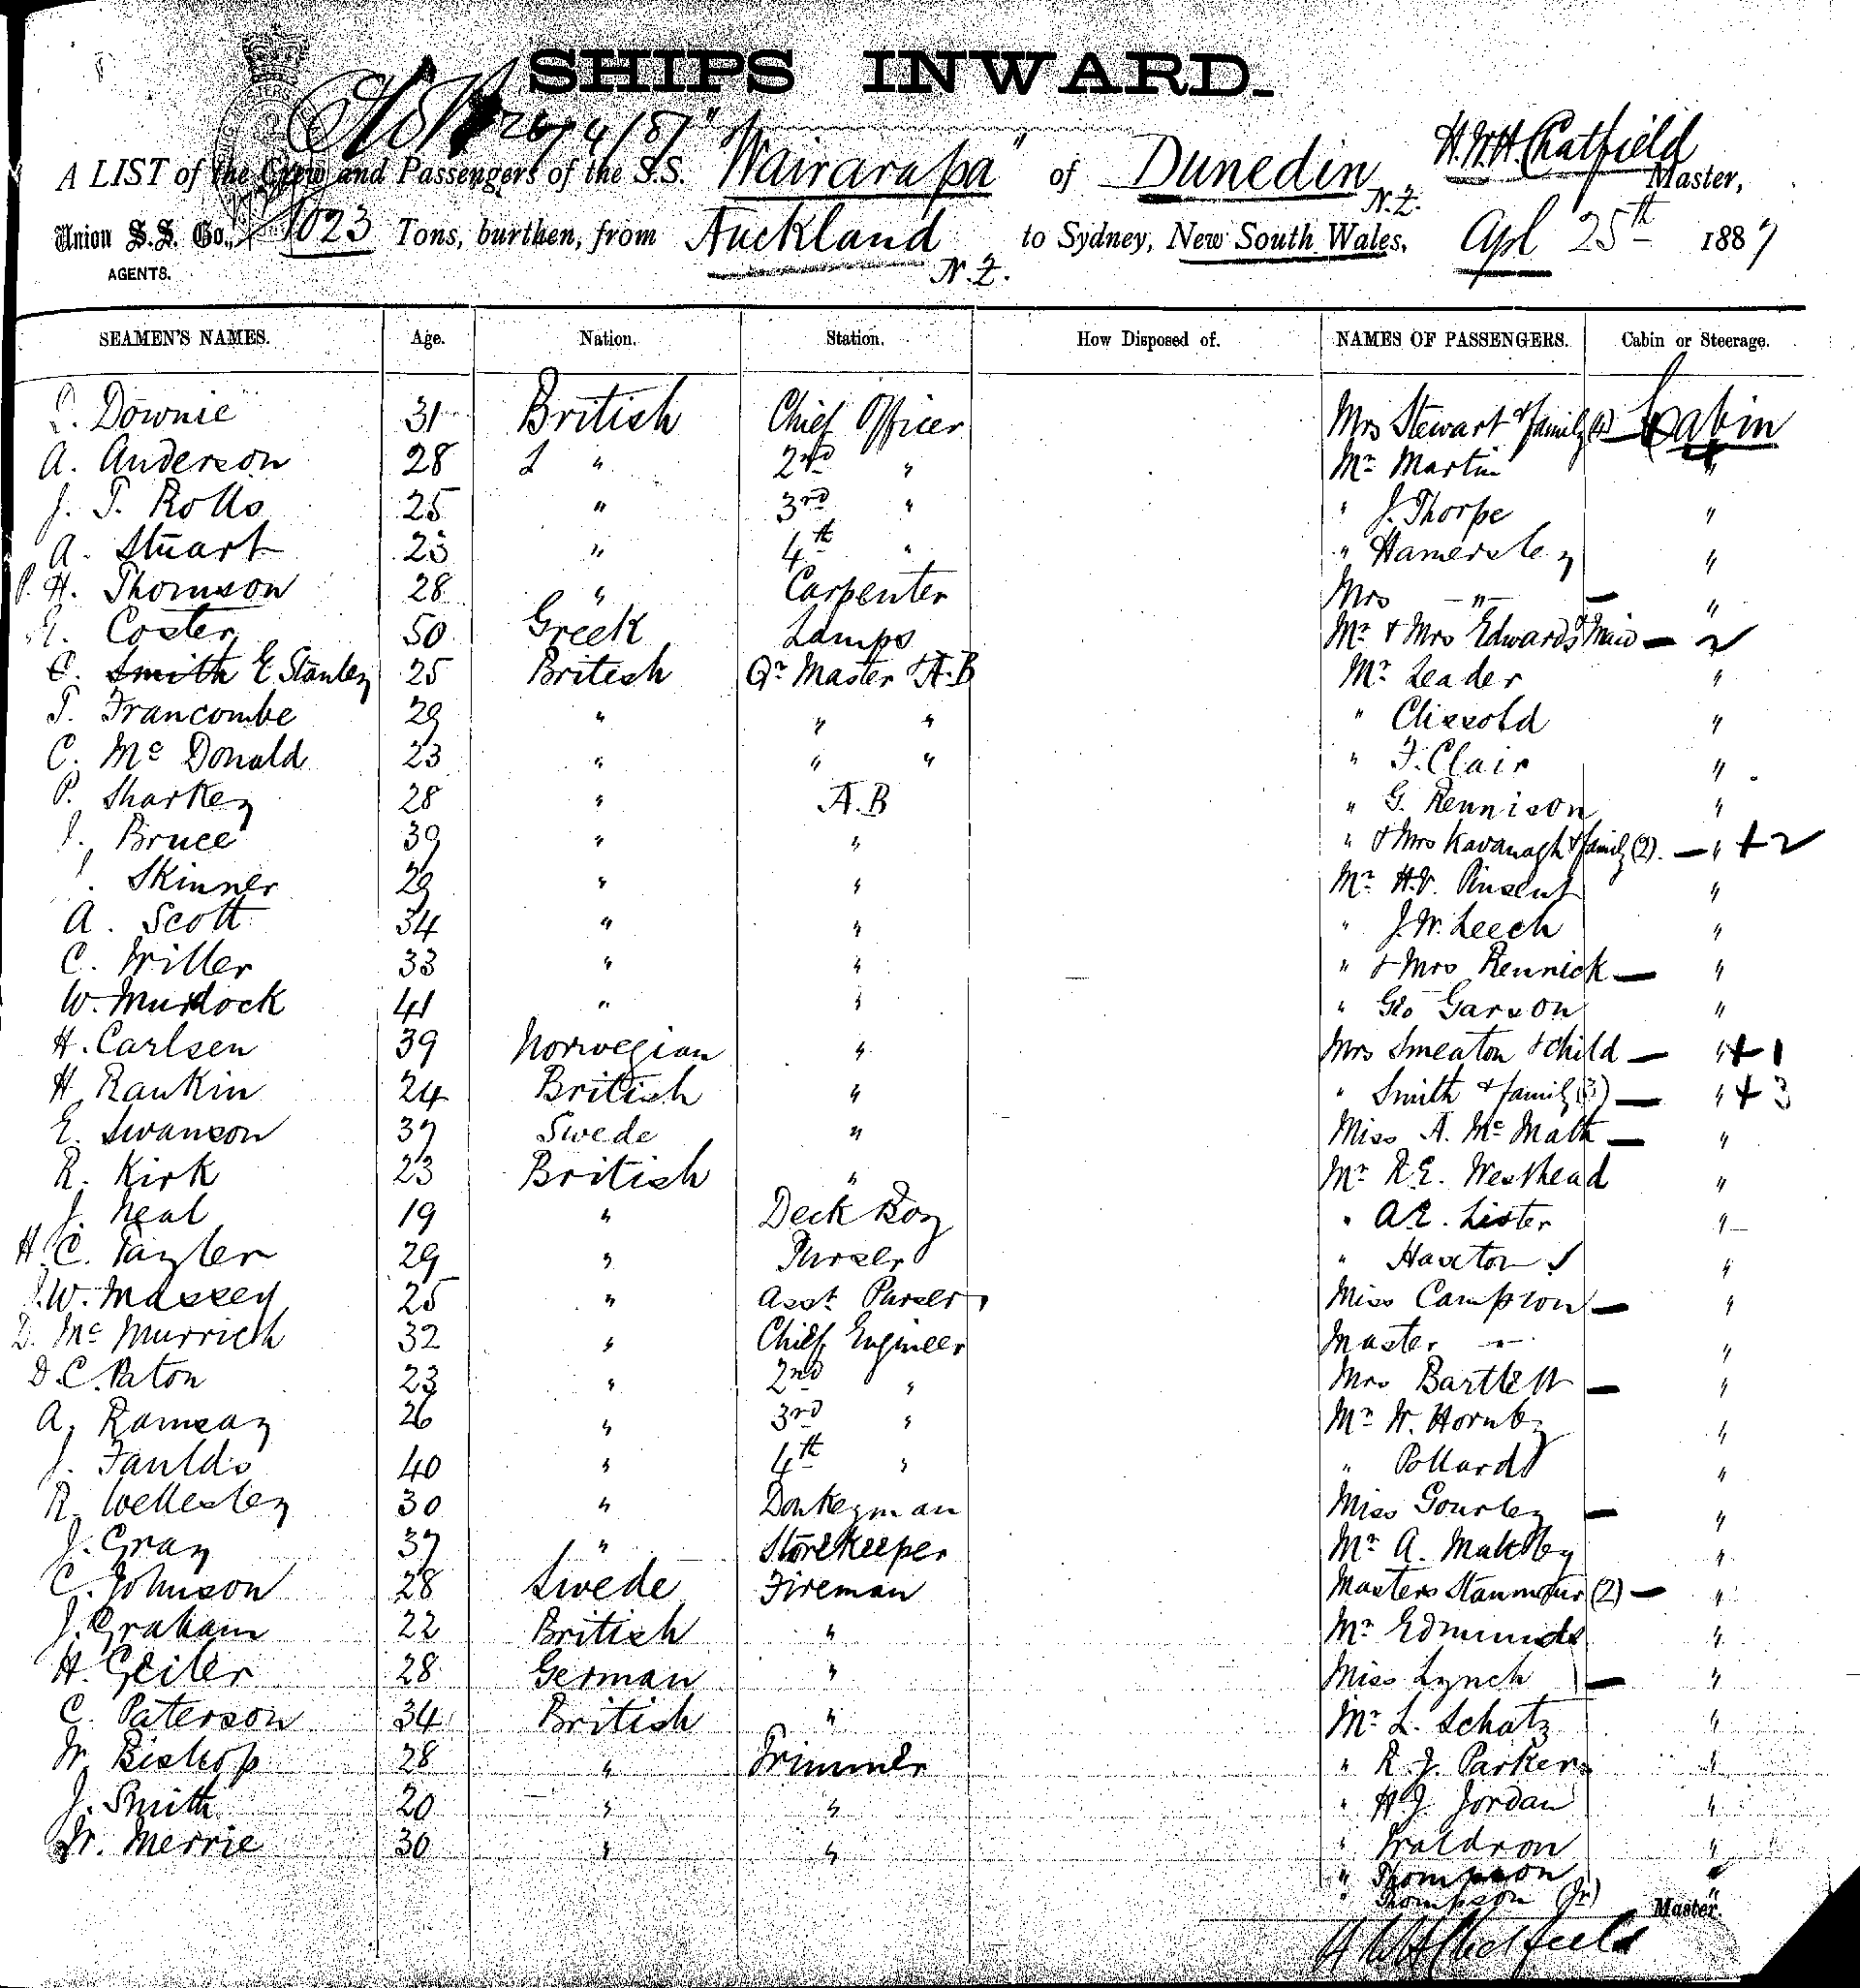 SHIPS INWARD.
26/4/87
A LIST of the Crew and Passengers of the S.S. "Wairarapa" of Dunedin N.Z. H.W.H. Chatfield Master,
Union S.S. Co., 1023 Tons, burthen, from Auckland N.Z. to Sydney, New South Wales, Apl 25th 1887
AGENTS.
SEAMEN'S NAMES. Age. Nation. Station. How Disposed of. NAMES OF PASSENGERS. Cabin or Steerage.
Downie 31 British Chief Officer Mrs Stewart & family (4) Cabin
A. Anderson 28 " 2nd " Mr Martin "
J. T. Rolls 25 " 3rd " " J. Thorpe "
A. Stuart 23 " 4th " " Hamersley "
P. H. Thomson 28 " Carpenter Mrs — " — "
Coster 50 Greek Lamps Mr & Mrs Edwards & Maid — 2
C. Smith E. Stanley 25 British Qr Master & A.B Mr Leader "
T. Francombe 29 " " " " Clissold "
C. Mc Donald 23 " " " " F. Clair "
P. Sharkey 28 " A.B " G. Rennison "
J. Bruce 39 " " " & Mrs Kavanagh & family (2) — " + 2
Skinner 29 " " Mr H.V. Pinsent "
A. Scott 34 " " " J.W. Leech "
C. Willer 33 " " " & Mrs Rennick — "
W. Murdock 41 " " " Geo Garson "
H. Carlsen 39 Norwegian " Mrs Smeaton & child — " + 1
H. Rankin 24 British " " Smith & family (3) — " + 3
E. Swanson 37 Swede " Miss A. Mc Math — "
R. Kirk 23 British " Mr R.E. Westhead "
J. Neal 19 " Deck Boy " A.E. Lister "
H. C. Tayler 29 " Purser " Haxton "
J. W. Massey 25 " Asst Purser Miss Campion — "
D. Mc Murrich 32 " Chief Engineer Master — " — "
D. C. Paton 23 " 2nd " Mrs Bartlett — "
A. Ramsay 26 " 3rd " Mr W. Hornby "
J. Faulds 40 " 4th " " Pollard "
R. Wellesley 30 " Donkeyman Miss Gourley — "
J. Gray 37 " Storekeeper Mr A. Maltby "
C. Johnson 28 Swede Fireman Masters Stanmour (2) — "
J. Graham 22 British " Mr Edmunds "
H. Geiler 28 German " Miss Lynch — "
C. Paterson 34 British " Mr L. Schatz "
W. Bishop 28 " Trimmer " R. J. Parker "
J. Smith 20 " " " H. J. Jordan "
W. Merrie 30 " " " Waldron "
" Thompson "
" Thompson (Jr) "
Master.
H W H Chatfield